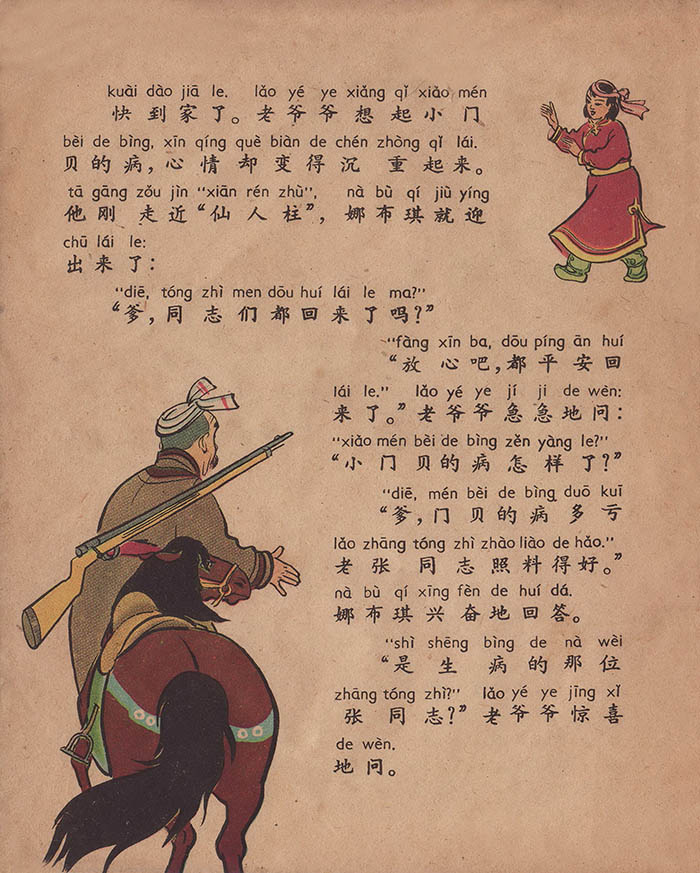 kuài dào jiā le. lǎo yé ye xiǎng qǐ xiǎo mén
快到家了。老爷爷想起小门
bèi de bìng, xīn qíng què biàn de chén zhòng qǐ lái.
贝的病，心情却变得沉重起来。
tā gāng zǒu jìn “xiān rén zhù”, nà bù qí jiù yíng
他刚走近“仙人柱”，娜布琪就迎
chū lái le:
出来了：
“diē, tóng zhì men dōu huí lái le ma?”
“爹，同志们都回来了吗？”
“fàng xīn ba, dōu píng ān huí
“放心吧，都平安回
lái le.” lǎo yé ye jí jí de wèn:
来了。”老爷爷急急地问：
“xiǎo mén bèi de bìng zěn yàng le?”
“小门贝的病怎样了？”
“diē, mén bèi de bìng duō kuī
“爹，门贝的病多亏
lǎo zhāng tóng zhì zhào liào de hǎo.”
老张同志照料得好。”
nà bù qí xīng fèn de huí dá.
娜布琪兴奋地回答。
“shì shēng bìng de nà wèi
“是生病的那位
zhāng tóng zhì?” lǎo yé ye jīng xǐ
张同志？”老爷爷惊喜
de wèn.
地问。